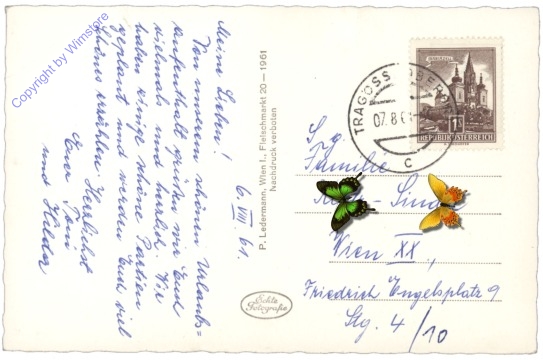 Copyright by Wimstore
6. VIII. 61.
Meine Lieben!
Von unserem schönen Urlaubs=
aufenthalt grüßen wir Euch
vielmals und herzlich. Wir
haben einige schöne Partien
geplant und werden Euch viel
Schönes erzählen. Herzlichst
Eure Toni
und Hilda
P. Ledermann, Wien I., Fleischmarkt 20 — 1961
Nachdruck verboten
Echte
Fotografie
TRAGÖSS-OBERORT
07.8.61
c
MARIAZELL
1S
REPUBLIK ÖSTERREICH
Familie
Wien XX.,
Friedrich Engelsplatz 9
Stg. 4/10